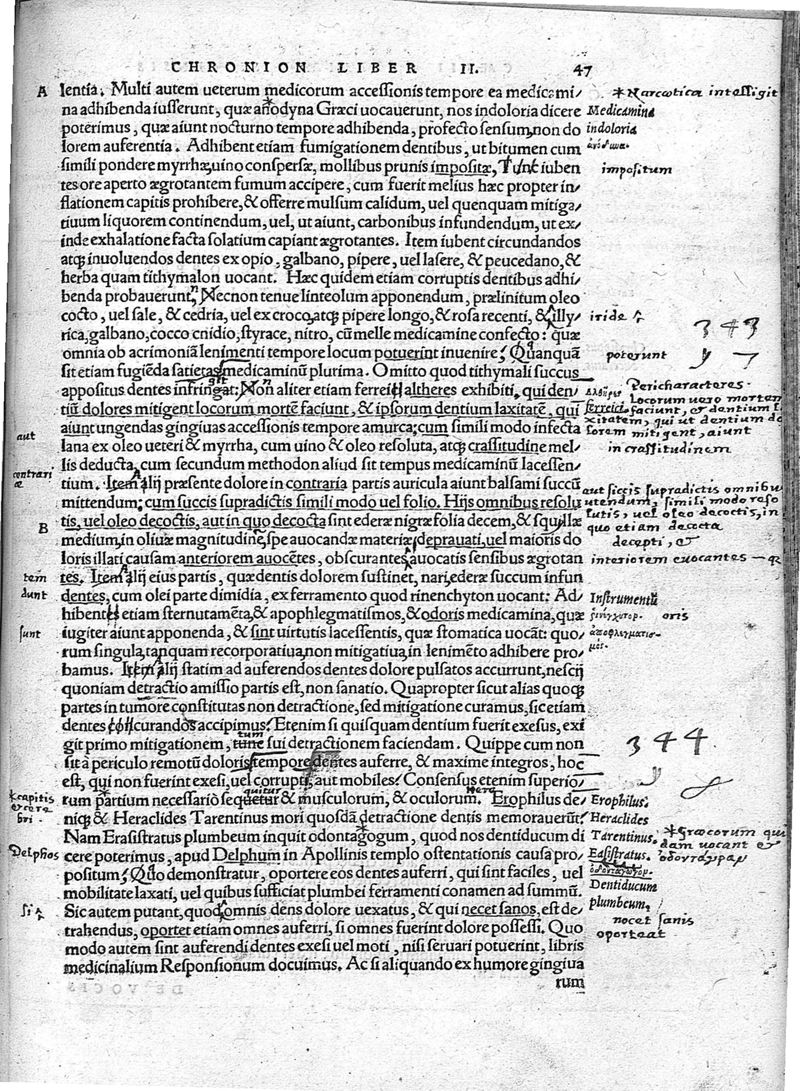 CHRONION LIBER II. 47
A lentia. Multi autem ueterum medicorum accessionis tempore ea medicami/
na adhibenda iusserunt, quæ anodyna Græci uocauerunt, nos indoloria dicere
poterimus, quæ aiunt nocturno tempore adhibenda, profecto sensum, non do
lorem auferentia. Adhibent etiam fumigationem dentibus, ut bitumen cum
simili pondere myrrhæ, uino conspersæ, mollibus prunis impositæ, Tunc iuben
tes ore aperto ægrotantem fumum accipere, cum fuerit melius hæc propter in/
flationem capitis prohibere, & offerre mulsum calidum, uel quenquam mitiga/
tiuum liquorem continendum, uel, ut aiunt, carbonibus infundendum, ut ex/
inde exhalatione facta solatium capiant ægrotantes. Item iubent circundandos
atq; inuoluendos dentes ex opio, galbano, pipere, uel lasere, & peucedano, &
herba quam tithymalon uocant. Hæc quidem etiam corruptis dentibus adhi/
benda probauerunt, Necnon tenue linteolum apponendum, prælinitum oleo
cocto, uel sale, & cedria, uel ex croco, atq; pipere longo, & rosa recenti, & illy/
rica, galbano, cocco cnidio, styrace, nitro, cū melle medicamine confecto: quæ
omnia ob acrimoniā lenimenti tempore locum potuerint inuenire: Quanquā
sit etiam fugiēda satietas medicaminū plurima. Omitto quod tithymali succus
appositus dentes infringat: Non aliter etiam ferrei haltheres exhibiti, qui den/
tiū dolores mitigent locorum mortē faciunt, & ipsorum dentium laxitatē, qui
aiunt ungendas gingiuas accessionis tempore amurca; cum simili modo infecta
lana ex oleo ueteri & myrrha, cum uino & oleo resoluta, atq; crassitudine mel/
lis deducta, cum secundum methodon aliud sit tempus medicaminū lacessen/
tium. Item alij præsente dolore in contraria partis auricula aiunt balsami succū
mittendum; cum succis supradictis simili modo uel folio. Hijs omnibus resolu
B tis, uel oleo decoctis, aut in quo decocta sint ederæ nigræ folia decem, & squillæ
medium, in oliuæ magnitudine, spe auocandæ materiæ deprauati, uel maioris do
loris illati causam anteriorem auocētes, obscurantes, auocatis sensibus ægrotan
tes. Item alij eius partis, quæ dentis dolorem sustinet, nari, ederæ succum infun
dentes, cum olei parte dimidia, ex ferramento quod rinenchyton uocant: Ad/
hibent etiam sternutamēta, & apophlegmatismos, & odoris medicamina, quæ
iugiter aiunt apponenda, & sint uirtutis lacessentis, quæ stomatica uocāt: quo/
rum singula, tanquam recorporatiua, non mitigatiua, in lenimēto adhibere pro/
bamus. Item alij statim ad auferendos dentes dolore pulsatos accurrunt, nescij
quoniam detractio amissio partis est, non sanatio. Quapropter sicut alias quoq;
partes in tumore constitutas non detractione, sed mitigatione curamus, sic etiam
dentes curandos accipimus: Etenim si quisquam dentium fuerit exesus, exi
git primo mitigationem, tunc sui detractionem faciendam. Quippe cum non
sit à periculo remotū doloris tempore dentes auferre, & maxime integros, hoc
est, qui non fuerint exesi, uel corrupti, aut mobiles: Consensus etenim superio/
rum partium necessariò sequetur & musculorum, & oculorum. Erophilus de/
niq; & Heraclides Tarentinus mori quosdā detractione dentis memorauerūt:
Nam Erasistratus plumbeum inquit odontagogum, quod nos dentiducum di
cere poterimus, apud Delphum in Apollinis templo ostentationis causa pro/
positum: Quo demonstratur, oportere eos dentes auferri, qui sint faciles, uel
mobilitate laxati, uel quibus sufficiat plumbei ferramenti conamen ad summū.
Sic autem putant, quod omnis dens dolore uexatus, & qui necet sanos, est de/
trahendus, oportet etiam omnes auferri, si omnes fuerint dolore possessi. Quo
modo autem sint auferendi dentes exesi uel moti, nisi seruari potuerint, libris
medicinalium Responsionum docuimus. Ac si aliquando ex humore gingiua
rum
* Narcotica intelligit
Medicamina
indoloria
impositum
iride
343
poterunt
Pericharacteres.
locorum uero mortem
ferrei
faciunt, et dentium
xitatem, qui ut dentium do
lorem mitigent, aiunt
in crassitudinem
aut siccis supradictis omnibus
utendum, simili modo reso
lutis, uel oleo decoctis, in
quo etiam decocta
decepti, et
interiorem euocantes
Instrumentū
oris
344
Erophilus.
Heraclides
Tarentinus.
* Græcorum qui
dam uocant et
Easistratus.
Dentiducum
plumbeum,
nocet sanis
oporteat
aut
contrari
æ
tem
dunt
sunt
* capitis
Delphos
si